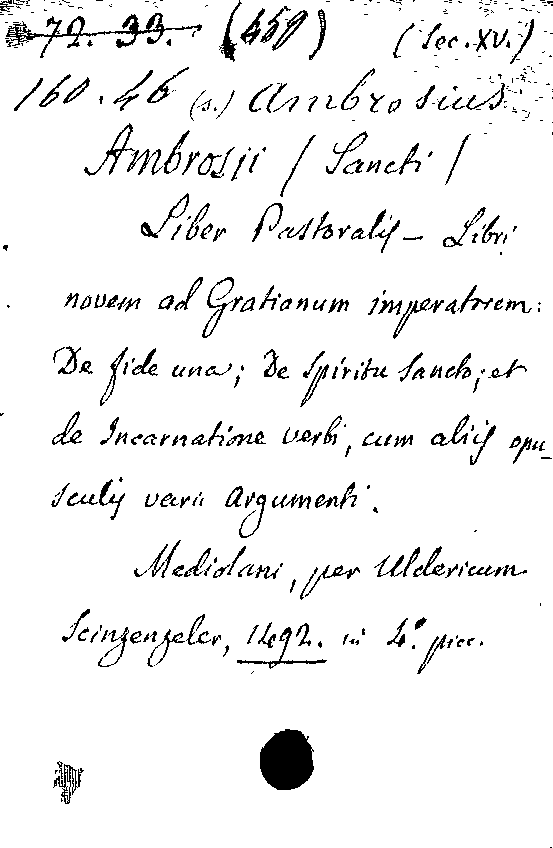 72. 33. (459) (Sec. XV.)
160. 46 (s.) Ambrosius
Ambrosii / Sancti /
Liber Pastoralis – Libri
novem ad Gratianum imperatorem:
De fide una; De Spiritu Sancto; et
de Incarnatione verbi, cum aliis opu-
sculis varii Argumenti.
Mediolani, per Uldericum
Scinzenzeler, 1492. in 4.° picc.